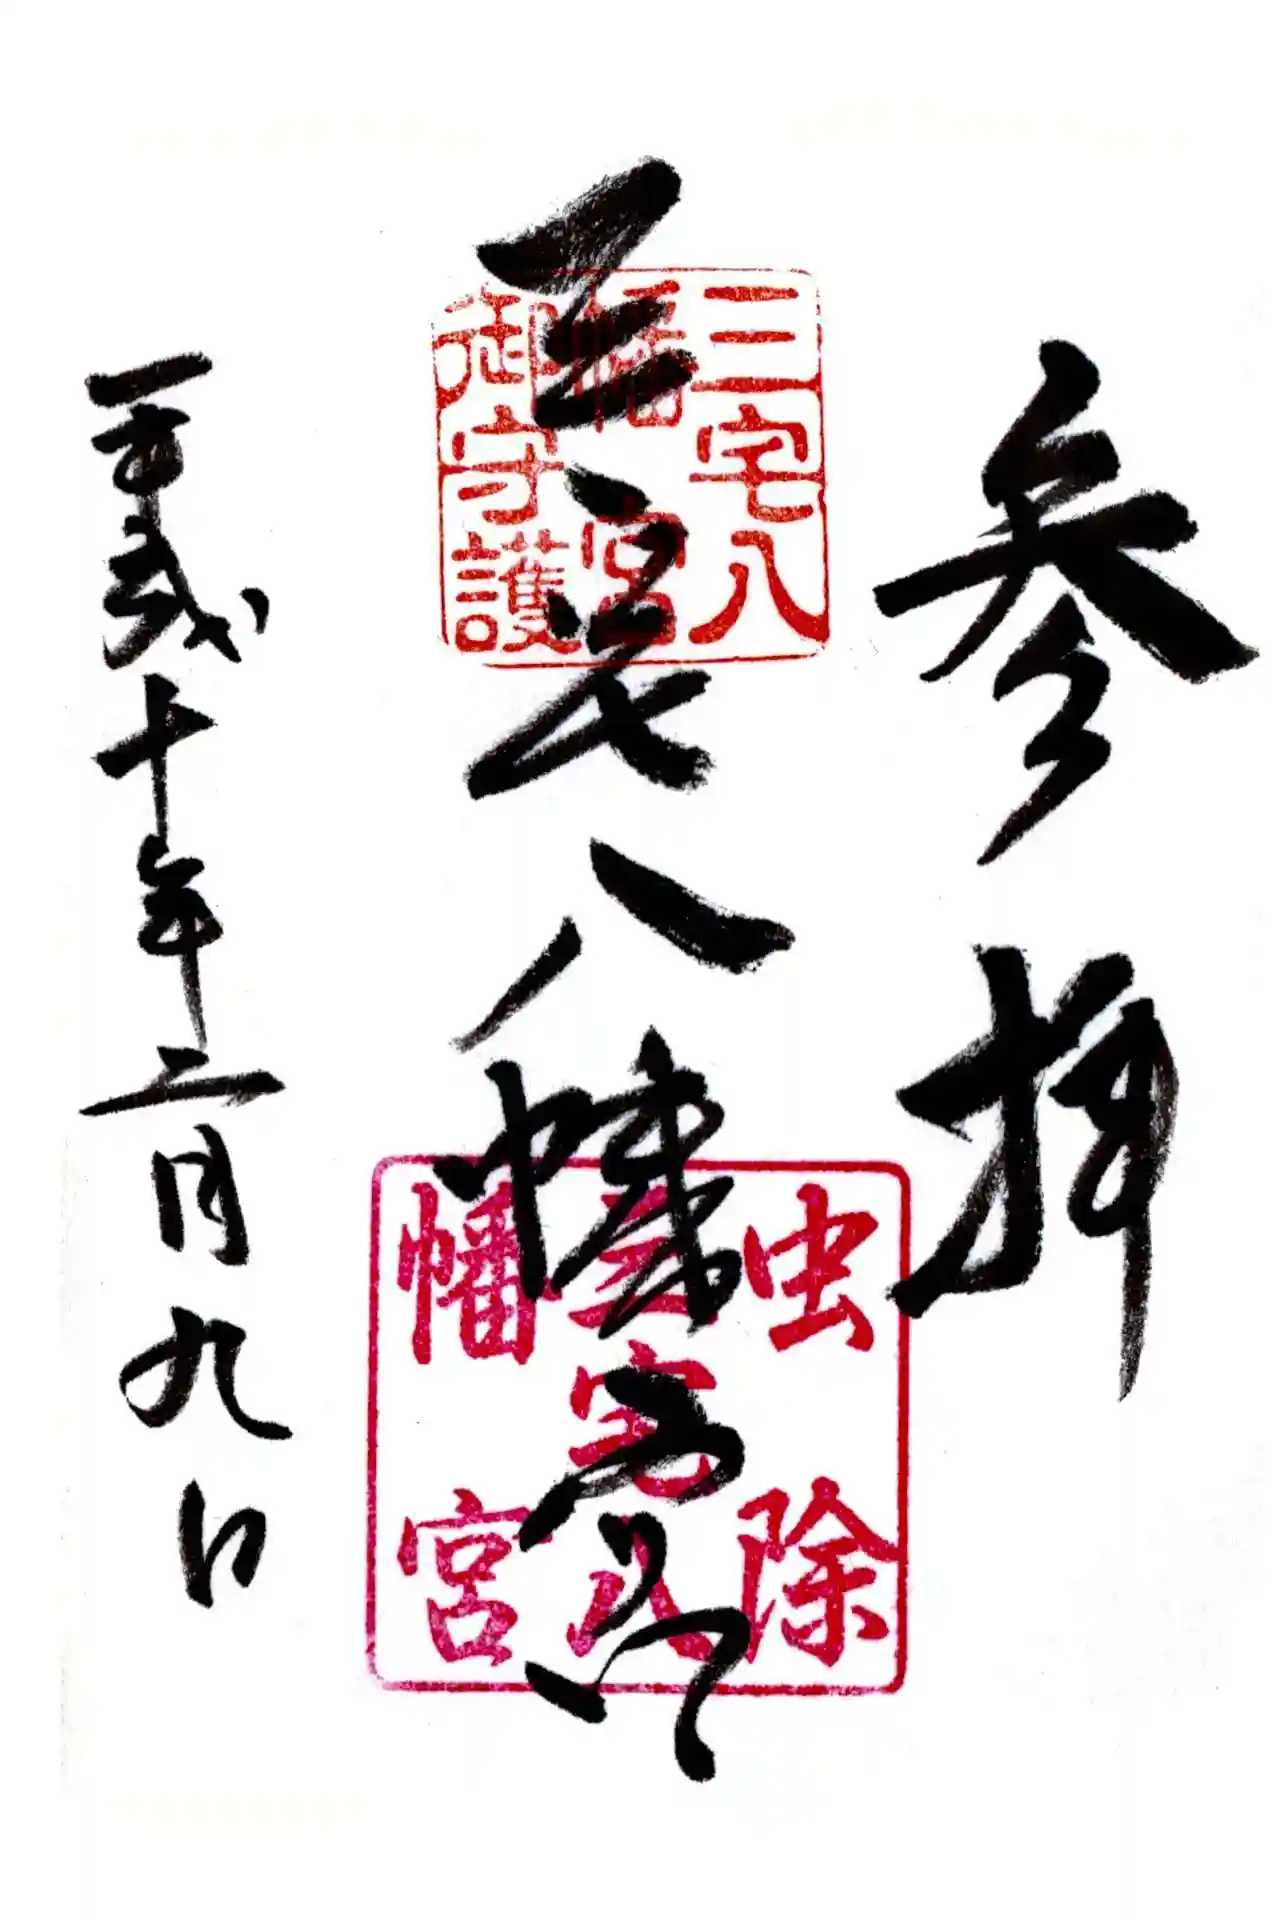 参拝
三宅八幡宮
三宅八
幡宮
御守護
虫除
三宅八
幡宮
十年二月九日